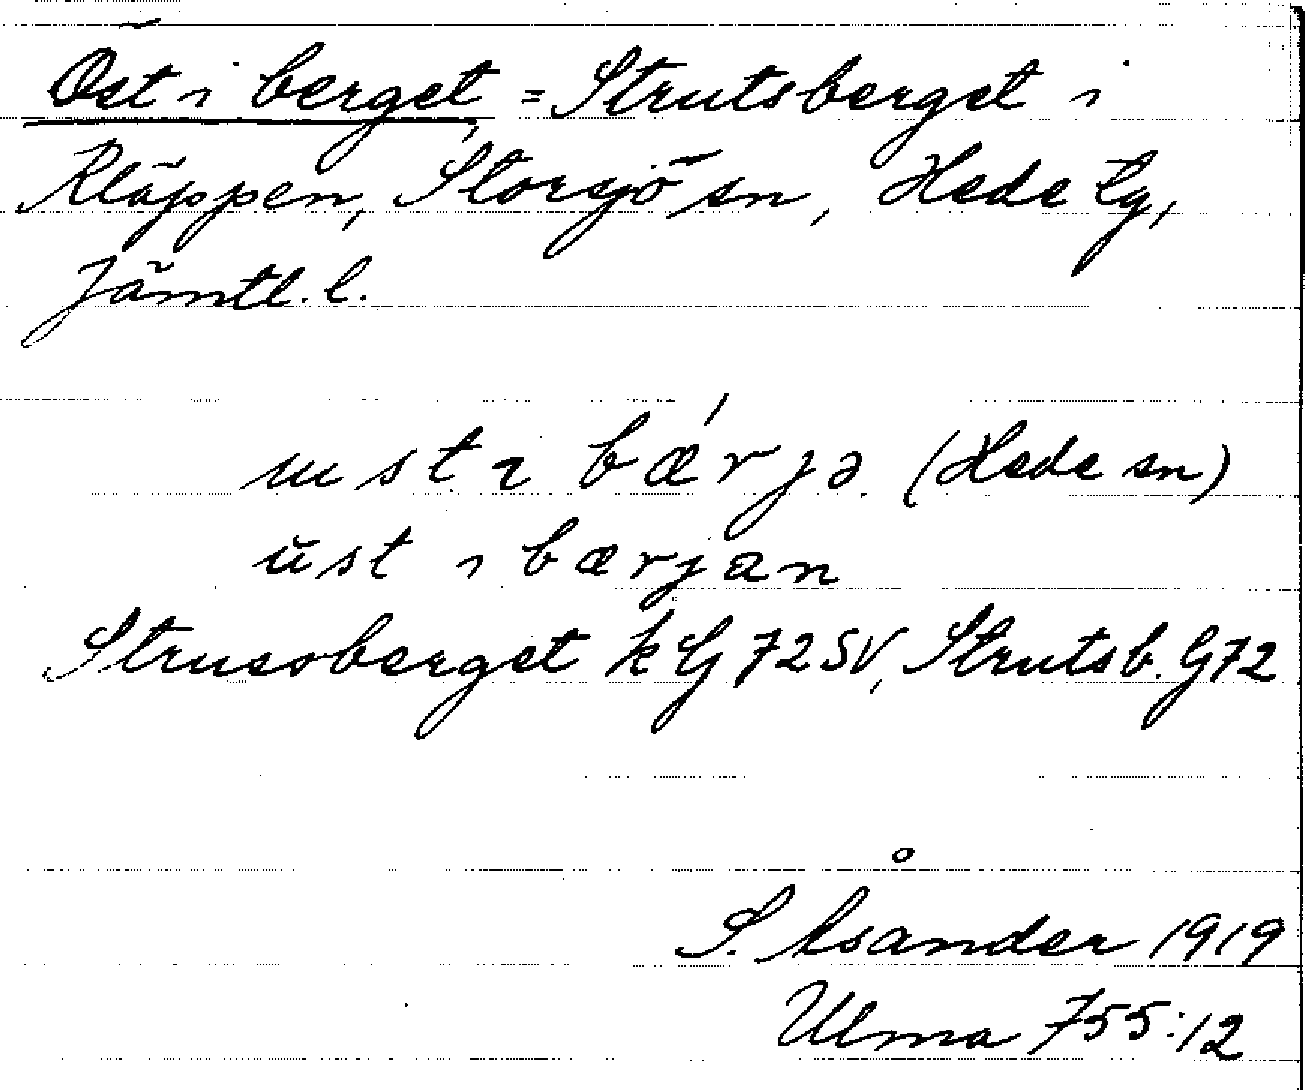 Öst i berget = Strutsberget i
Kläppen, Storsjö sn, Hede tg,
Jämtl. l.
ust ɩ bǽrjə (Hede sn)
ŭst i bærjan
Strussberget k G 72 SV, Strutsb. G 72
S. Åsander 1919
Ulma 755:12